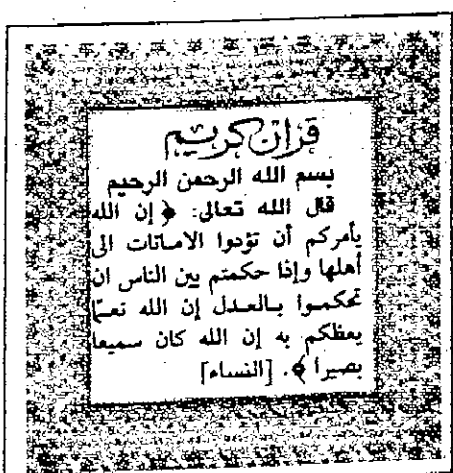 قرآن كريم
بسم الله الرحمن الرحيم
قال الله تعالى: ﴿ إن الله
يأمركم أن تؤدوا الامانات الى
أهلها وإذا حكمتم بين الناس ان
تحكموا بالعدل إن الله نعمّا
يعظكم به إن الله كان سميعا
بصيرا ﴾. [النساء]